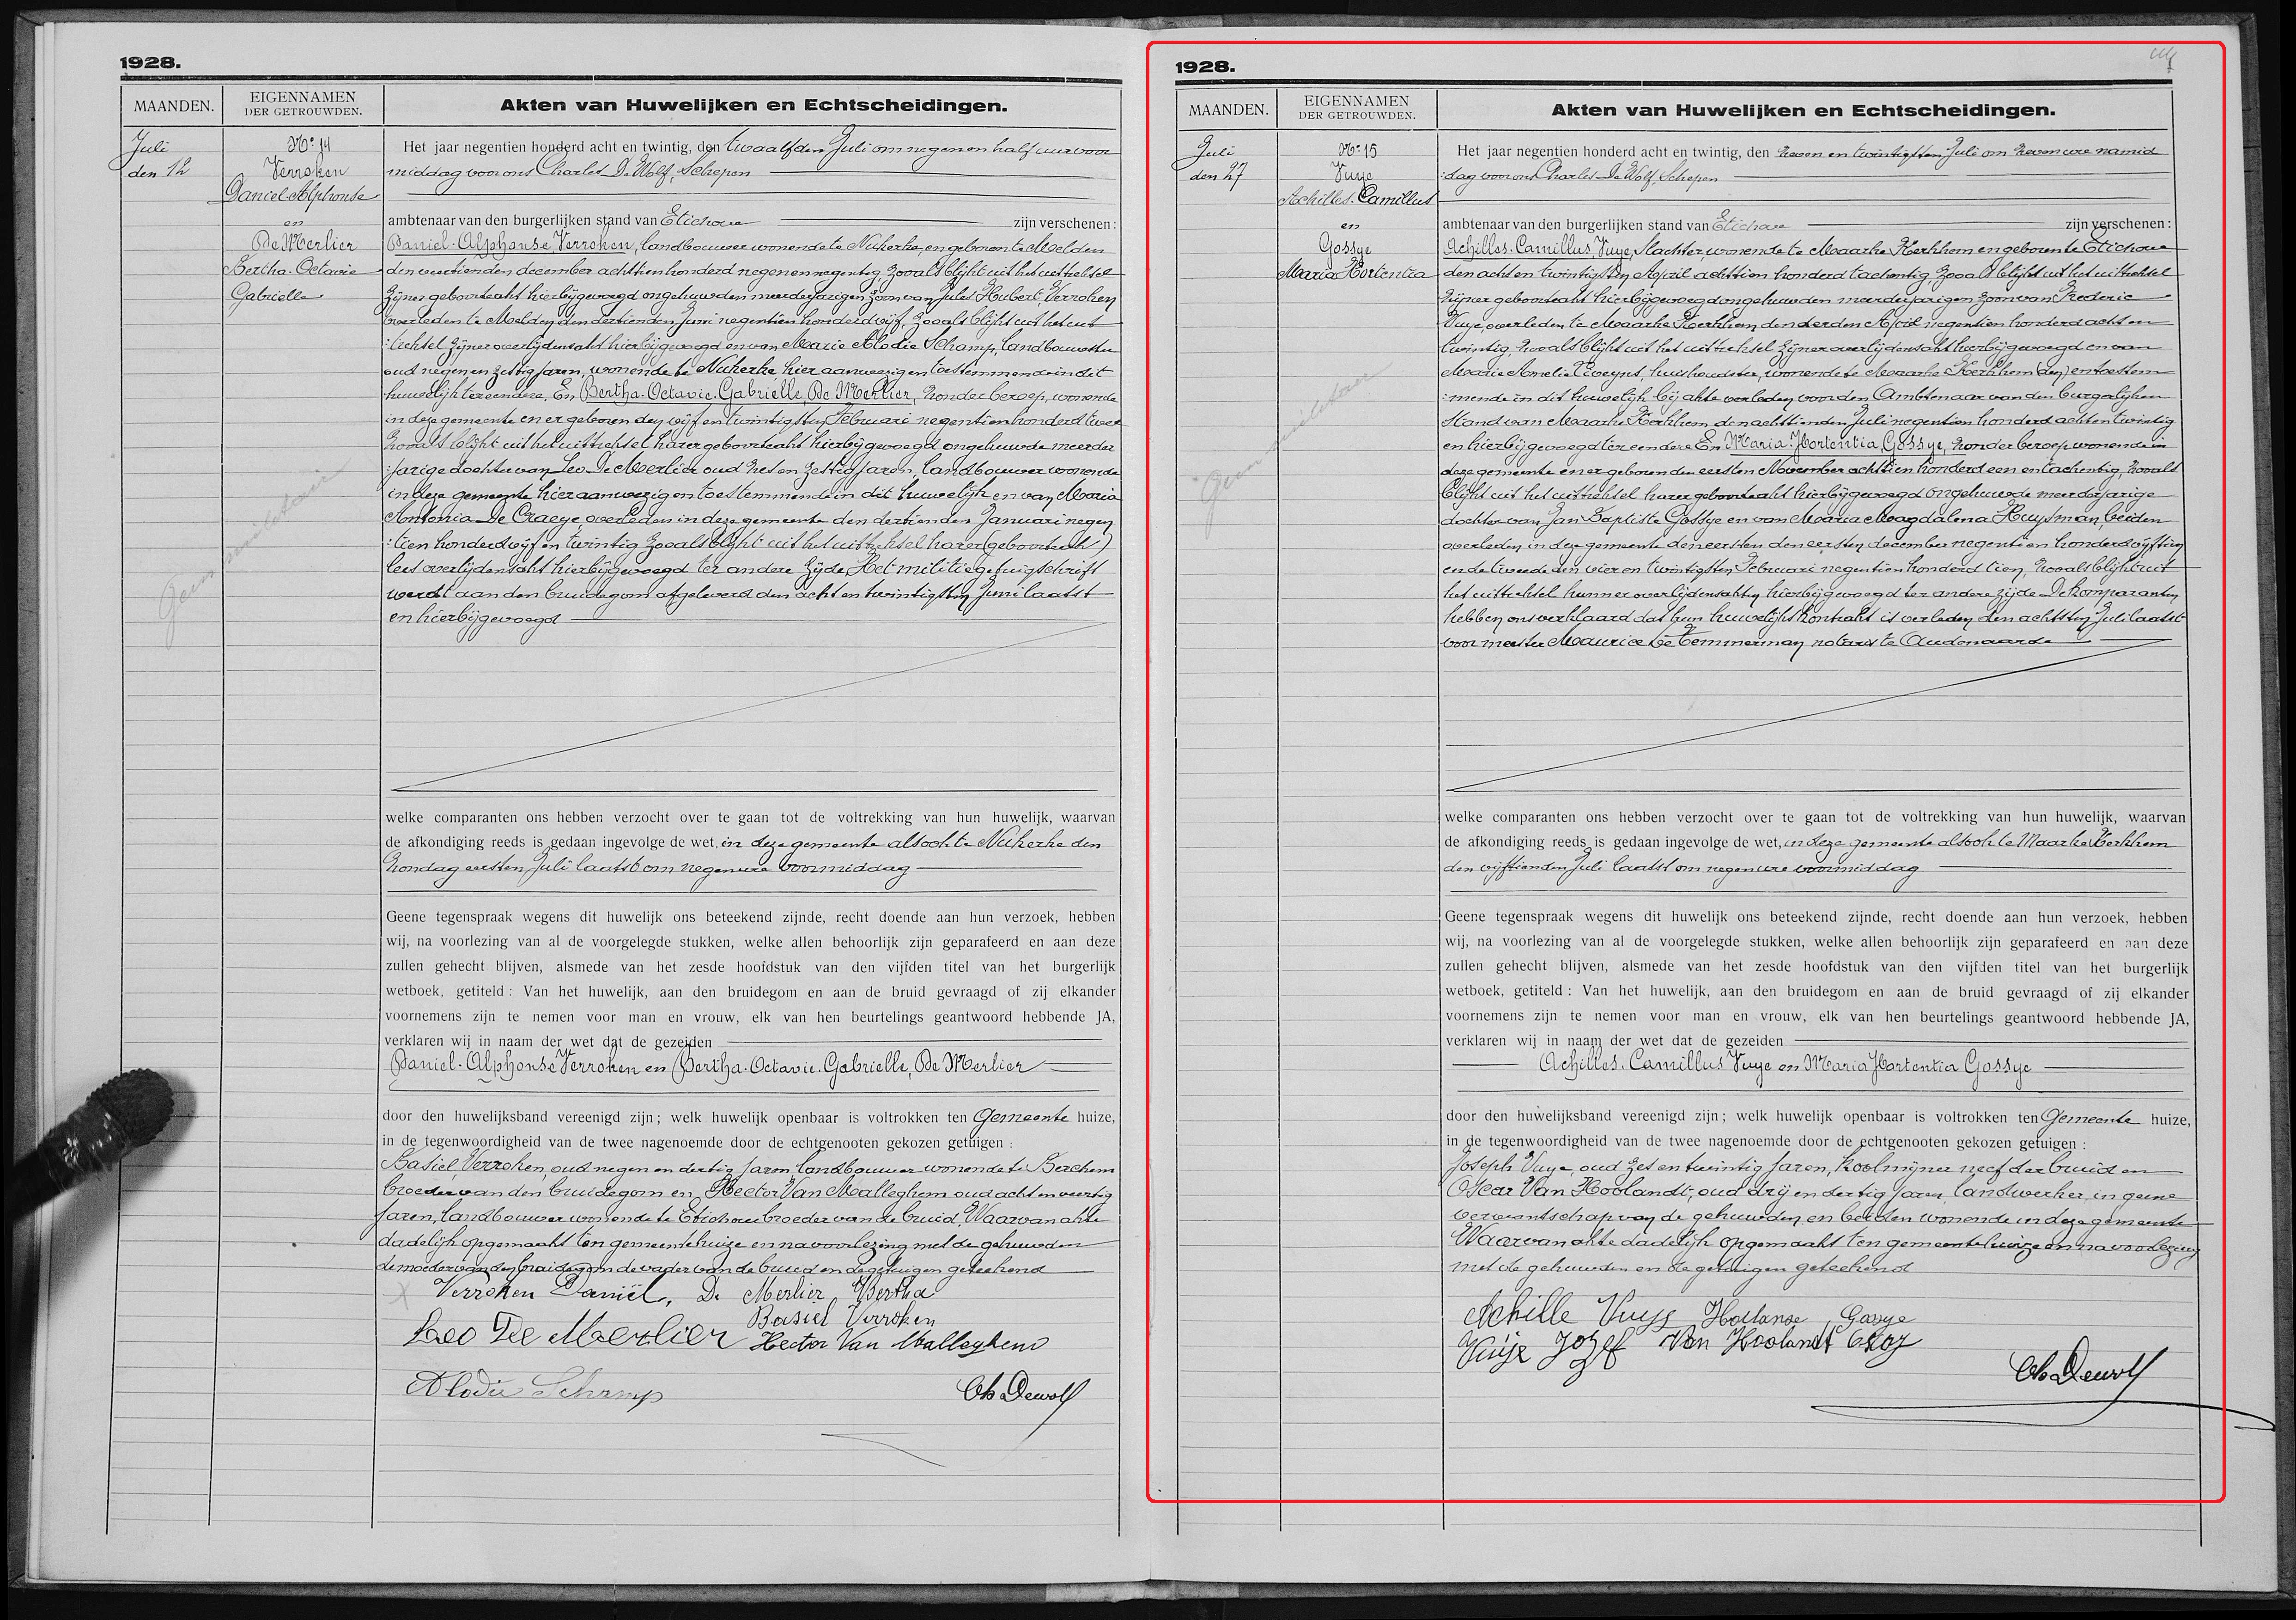 1928.
MAANDEN.
EIGENNAMEN
DER GETROUWDEN.
Akten van Huwelijken en Echtscheidingen.
Juli
den 12
No 14
Verroken
Daniel Alphonse
en
De Merlier
Bertha-Octavie
Gabrielle
Geen militair
Het jaar negentien honderd acht en twintig, den twaalfden Juli om negen en half uur voor
middag voor ons Charles De Wolf, Schepen
ambtenaar van den burgerlijken stand van Etichove zijn verschenen:
Daniel-Alphonse Verroken, landbouwer wonende te Nukerke, en geboren te Melden
den veertienden december achttien honderd negen en negentig, zooals blijkt uit het uittreksel
zijner geboorteakt hierbijgevoegd ongehuwden meerderjarigen zoon van Jules Hubert Verroken
overleden te Melden den dertienden Juni negentien honderd vijf, zooals blijkt uit het uit
:treksel zijner overlijdensakt hierbijgevoegd en van Marie Elodie Schamp, landbouwster
oud negen en zestig jaren, wonende te Nukerke hier aanwezig en toestemmende in dit
huwelijk ter eendere, En Bertha-Octavie-Gabrielle, De Merlier, zonder beroep, wonende
in deze gemeente en er geboren den vijf en twintigsten Februari negentien honderd twee
zooals blijkt uit het uittreksel harer geboorteakt hierbijgevoegd ongehuwde meerder
:jarige dochter van Leo De Merlier oud zes en zestig jaren, landbouwer wonende
in deze gemeente hier aanwezig en toestemmende in dit huwelijk en van Maria
Antonia De Craeye, overleden in deze gemeente den dertienden Januari negen
:tien honderd vijf en twintig zooals blijkt uit het uittreksel harer (geboorteakt)
lees overlijdensakt hierbijgevoegd ter andere zijde, Het militiegetuigschrift
werdt aan den bruidegom afgeleverd den acht en twintigsten Juni laatst
en hierbijgevoegd
welke comparanten ons hebben verzocht over te gaan tot de voltrekking van hun huwelijk, waarvan
de afkondiging reeds is gedaan ingevolge de wet, in deze gemeente alsook te Nukerke den
Zondag eersten Juli laatst om negen ure voormiddag
Geene tegenspraak wegens dit huwelijk ons beteekend zijnde, recht doende aan hun verzoek, hebben
wij, na voorlezing van al de voorgelegde stukken, welke allen behoorlijk zijn geparafeerd en aan deze
zullen gehecht blijven, alsmede van het zesde hoofdstuk van den vijfden titel van het burgerlijk
wetboek, getiteld: Van het huwelijk, aan den bruidegom en aan de bruid gevraagd of zij elkander
voornemens zijn te nemen voor man en vrouw, elk van hen beurtelings geantwoord hebbende JA,
verklaren wij in naam der wet dat de gezeiden
Daniel-Alphonse Verroken en Bertha-Octavie-Gabrielle, De Merlier
door den huwelijksband vereenigd zijn; welk huwelijk openbaar is voltrokken ten Gemeente huize,
in de tegenwoordigheid van de twee nagenoemde door de echtgenooten gekozen getuigen:
Basiel Verroken, oud negen en dertig jaren, landbouwer wonende te Berchem
broeder van den bruidegom en Hector Van Malleghem oud acht en veertig
jaren, landbouwer wonende te Etichove broeder van de bruid, Waarvan akte
dadelijk opgemaakt ten gemeentehuize en na voorlezing met de gehuwden
de moeder van den bruidegom de vader van de bruid en de getuigen geteekend
Verroken Daniël, De Merlier Bertha
Basiel Verroken
Leo De Merlier Hector Van Malleghem
Elodie Schamp Ch Dewolf
1928.
MAANDEN.
EIGENNAMEN
DER GETROUWDEN.
Akten van Huwelijken en Echtscheidingen.
Juli
den 27
No 15
Vuye
Achilles-Camillus
en
Gossye
Maria Hortentia
Geen militair
Het jaar negentien honderd acht en twintig, den zeven en twintigsten Juli om zeven ure namid
:dag voor ons Charles De Wolf, Schepen
ambtenaar van den burgerlijken stand van Etichove zijn verschenen:
Achilles-Camillus, Vuye, slachter, wonende te Maarke Kerkhem en geboren te Etichove
den acht en twintigsten April achttien honderd tachentig, zooals blijkt uit het uittreksel
zijner geboorteakt hierbijgevoegd ongehuwden meerderjarigen zoon van Frederic
Vuye, overleden te Maarke Kerkhem den derden April negentien honderd acht en
twintig, zooals blijkt uit het uittreksel zijner overlijdensakt hierbijgevoegd en van
Marie Amelie Eweyns, huishoudster, wonende te Maarke Kerkhem (den) en toestem
:mende in dit huwelijk bij akte verleden voor den Ambtenaar van den burgerlijken
Stand van Maarke Kerkhem den achttienden Juli negentien honderd acht en twintig
en hierbijgevoegd ter eendere En Maria Hortentia, Gossye, zonder beroep wonende in
deze gemeente en er geboren den eersten November achttien honderd een en tachentig, zooals
blijkt uit het uittreksel harer geboorteakt hierbijgevoegd ongehuwde meerderjarige
dochter van Jan Baptiste Gossye en van Maria Magdalena Huysman, beiden
overleden in deze gemeente den eersten den eersten december negentien honderd vijftien
en de tweede den vier en twintigsten Februari negentien honderd tien, zooals blijkt uit
het uittreksel hunner overlijdensakten hierbijgevoegd ter andere zijde De komparanten
hebben ons verklaard dat hun huwelijkskontrakt is verleden den achtsten Juli laatst
voor meester Maurice De Temmerman notaris te Audenaarde
welke comparanten ons hebben verzocht over te gaan tot de voltrekking van hun huwelijk, waarvan
de afkondiging reeds is gedaan ingevolge de wet, in deze gemeente alsook te Maarke Kerkhem
den vijftienden Juli laatst om negen ure voormiddag
Geene tegenspraak wegens dit huwelijk ons beteekend zijnde, recht doende aan hun verzoek, hebben
wij, na voorlezing van al de voorgelegde stukken, welke allen behoorlijk zijn geparafeerd en aan deze
zullen gehecht blijven, alsmede van het zesde hoofdstuk van den vijfden titel van het burgerlijk
wetboek, getiteld: Van het huwelijk, aan den bruidegom en aan de bruid gevraagd of zij elkander
voornemens zijn te nemen voor man en vrouw, elk van hen beurtelings geantwoord hebbende JA,
verklaren wij in naam der wet dat de gezeiden
Achilles-Camillus Vuye en Maria Hortentia Gossye
door den huwelijksband vereenigd zijn; welk huwelijk openbaar is voltrokken ten Gemeente huize,
in de tegenwoordigheid van de twee nagenoemde door de echtgenooten gekozen getuigen:
Joseph Vuye, oud zes en twintig jaren, koolmijner neef der bruid en
Oscar Van Hoolandt, oud drij en dertig jaren, landwerker in geene
verwantschap van de gehuwden en beiden wonende in deze gemeente
Waarvan akte dadelijk opgemaakt ten gemeentehuize en na voorlezing
met de gehuwden en de getuigen geteekend
Achille Vuye Gossye
Vuije Jozef Van Hoolandt
Ch Dewolf